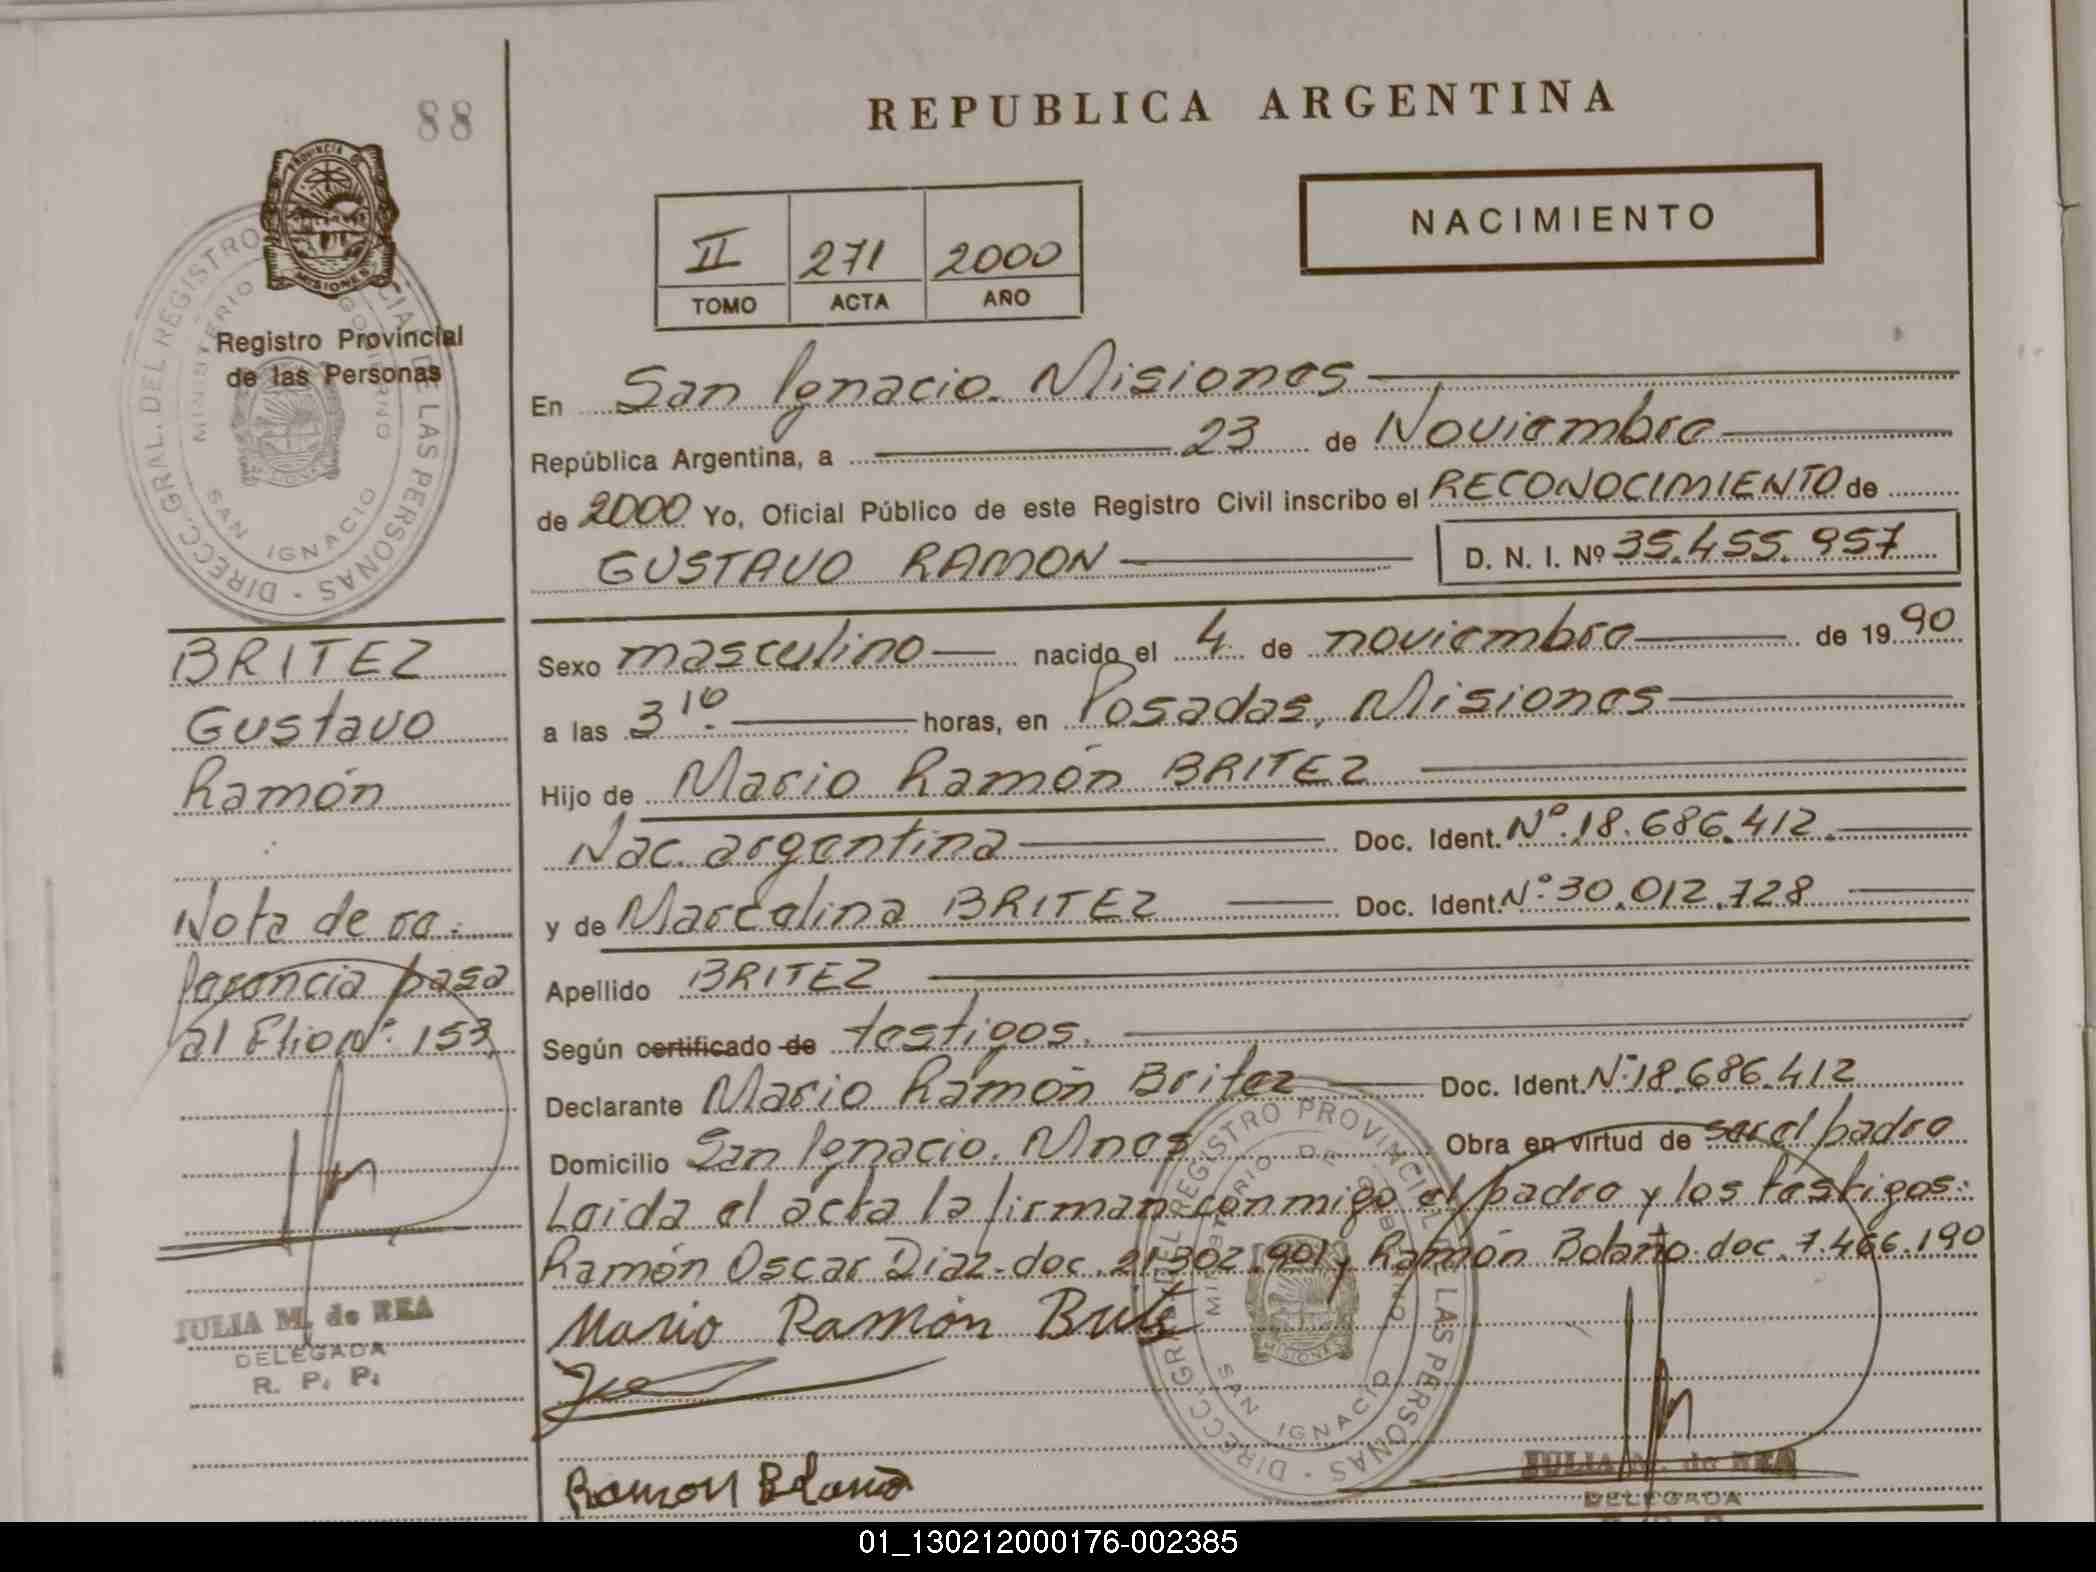 88
REPUBLICA ARGENTINA
NACIMIENTO
II 271 2000
TOMO ACTA AÑO
PROVINCIA DE
MISIONES
Registro Provincial
de las Personas
DIRECC. GRAL. DEL REGISTRO PROVINCIAL DE LAS PERSONAS
MINISTERIO DE GOBIERNO
SAN IGNACIO
En San Ignacio. Misiones
República Argentina, a 23 de Noviembre
de 2000 Yo, Oficial Público de este Registro Civil inscribo el RECONOCIMIENTO de
GUSTAVO RAMON D. N. I. Nº 35.455.957
Sexo masculino nacido el 4 de noviembre de 1990
a las 3 10 horas, en Posadas, Misiones
Hijo de Mario Ramón BRITEZ
Nac. argentina Doc. Ident. Nº 18.686.412
y de Marcelina BRITEZ Doc. Ident. Nº 30.012.728
Apellido BRITEZ
Según certificado de testigos.
Declarante Mario Ramón Britez Doc. Ident. Nº 18.686.412
Domicilio San Ignacio. Mnes Obra en virtud de ser el padre
Leida el acta la firman conmigo el padre y los testigos:
Ramón Oscar Diaz. doc. 21.302.901 y Ramón Bolaño. doc. 7.466.190
Mario Ramón Britez
Ramon Bolaño
BRITEZ
Gustavo
Ramón
Nota de re.
ferencia pasa
al Flio Nº 153
JULIA M. de REA
DELEGADA
R. P. P.
DIRECC. GRAL. DEL REGISTRO PROVINCIAL DE LAS PERSONAS
MINISTERIO DE GOBIERNO
MISIONES
SAN IGNACIO
JULIA M. de REA
DELEGADA
01_130212000176-002385